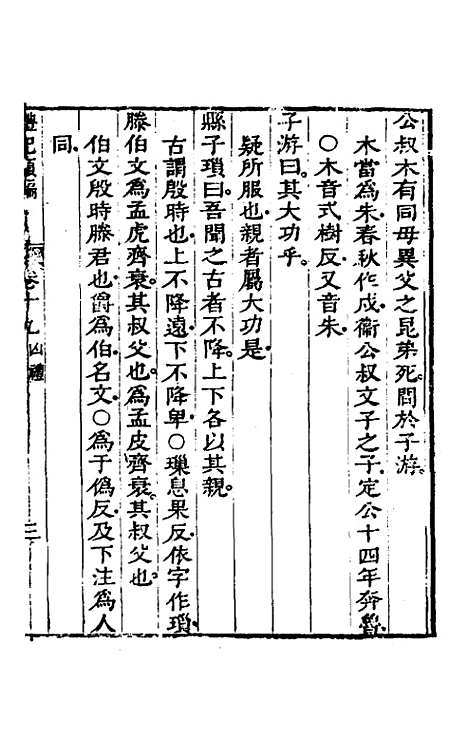 公叔木有同母異父之昆弟死問於子游
木當爲朱春秋作戍衞公叔文子之子定公十四年奔魯
○木音式樹反又音朱
子游曰其大功乎
疑所服也親者屬大功是
縣子瑣曰吾聞之古者不降上下各以其親
古謂殷時也上不降遠下不降卑○璅息果反依字作瑣
滕伯文爲孟虎齊衰其叔父也爲孟皮齊衰其叔父也
伯文殷時滕君也爵爲伯名文○爲于僞反及下注爲人
同
禮記類編 卷十九凶禮